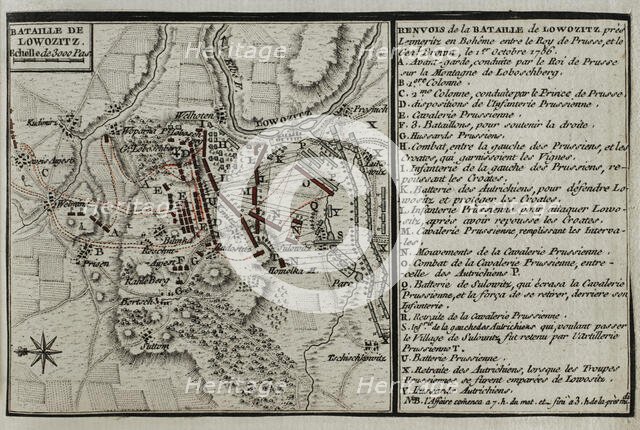 BATAILLE DE
LOWOZITZ.
Echelle de 3000 Pas.
Kudimir
Welhoten
LOWOZITZ
Prosmich
Wopanna
Gr. Loboschberg
Welmin
Prisen
Bilinka
Kahleberg
Bortsch
Sutton
Sulowitz
Homolka M.
Parc
Tschischkowitz
RENVOIS de la BATAILLE de LOWOZITZ près
Leitmeritz en Bohême entre le Roy de Prusse, et le
Gen.l Broun, le 1.er Octobre 1756.
A. Avant-garde, conduite par le Roi de Prusse
sur la Montagne de Loboschberg.
B. 1ere Colonne.
C. 2me Colonne, conduite par le Prince de Prusse.
D. dispositions de l'Infanterie Prussienne.
E. Cavalerie Prussienne.
F. 3. Bataillons, pour soutenir la droite.
G. Hussards Prussiens.
H. Combat, entre la gauche des Prussiens, et les
Croates, qui garnissoient les Vignes.
I. Infanterie de la gauche des Prussiens, re-
poussant les Croates.
K. Batterie des Autrichiens, pour défendre Lo-
wositz et protéger les Croates.
L. Infanterie Prussienne pour attaquer Lowo-
sitz, après avoir repoussé les Croates.
M. Cavalerie Prussienne, remplissant les Interva-
les.
N. Mouvements de la Cavalerie Prussienne.
O. Combat de la Cavalerie Prussienne, entre-
celle des Autrichiens P.
Q. Batterie de Sulowitz, qui écrasa la Cavalerie
Prussienne, et la força de se retirer, derriere son
Infanterie.
R. Retraite de la Cavalerie Prussienne.
S. Inf.rie de la gauche des Autrichiens qui, voulant passer
le Village de Sulowitz, fut retenu par l'Artillerie
Prussienne T.
U. Batterie Prussienne.
X. Retraite des Autrichiens, lorsque les Troupes
Prussiennes se furent emparées de Lowositz.
Y. Hussards Autrichiens.
NB. l'Affaire comença a 7. h. du mat. et fini a 3. h. de la près midi
heritage images